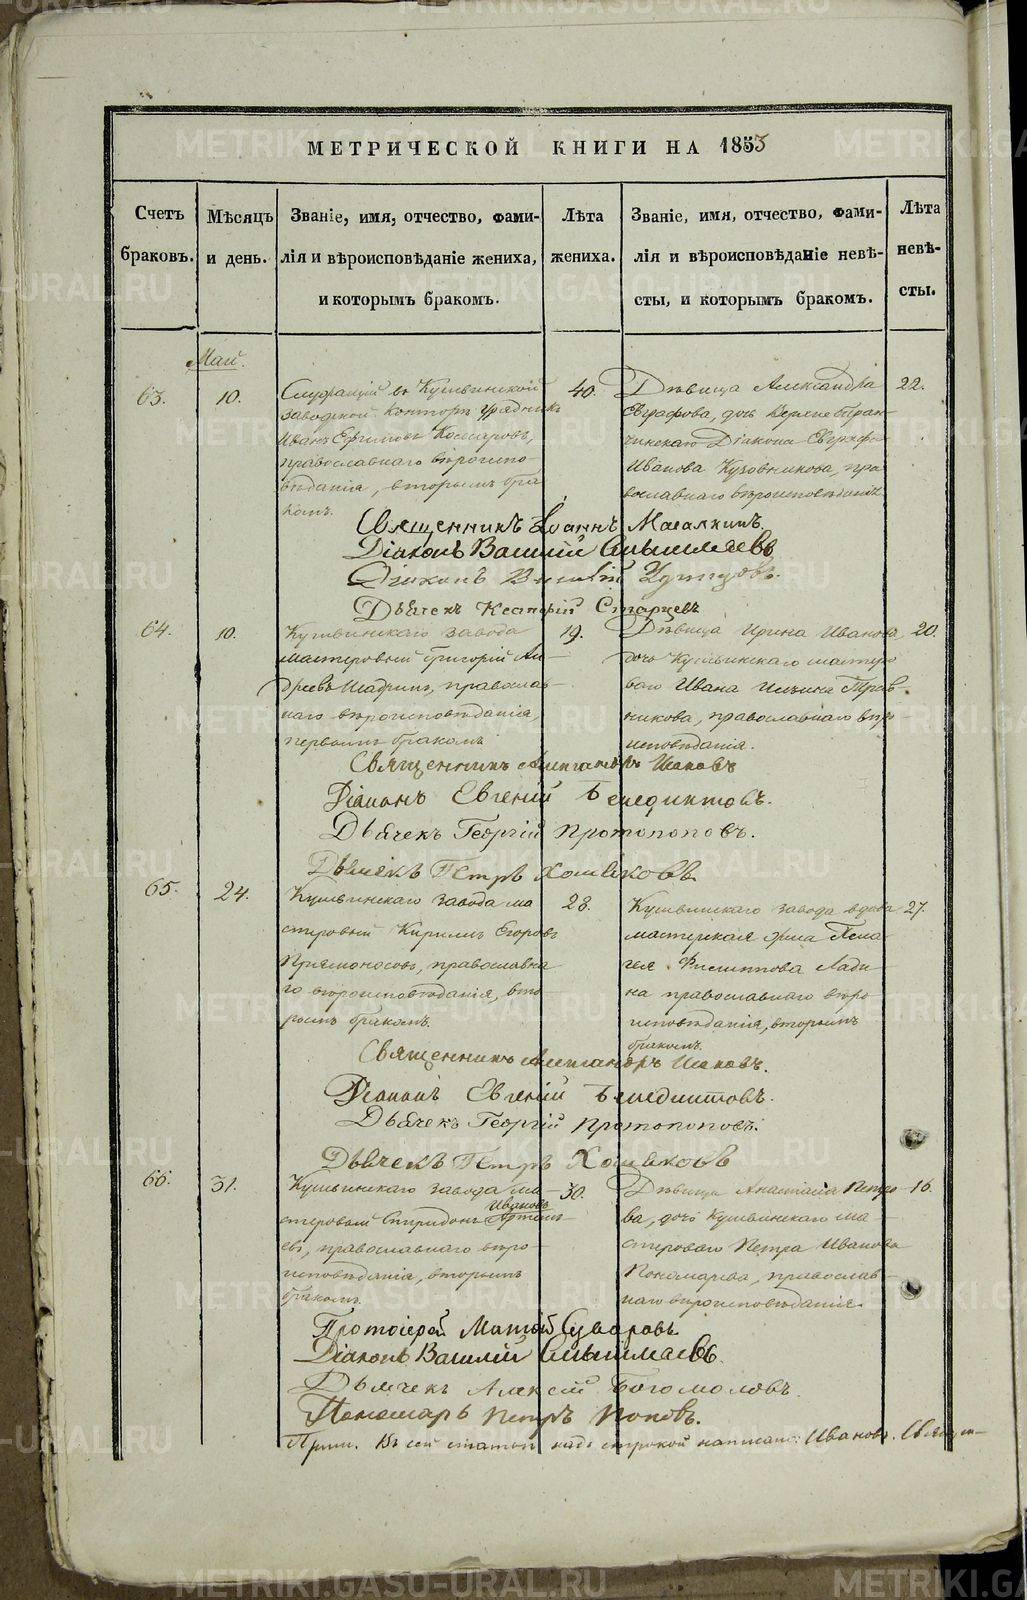 МЕТРИЧЕСКОЙ КНИГИ НА 1853
Счетъ браковъ.
Мѣсяцъ и день.
Званіе, имя, отчество, фами-
лія и вѣроисповѣданіе жениха,
и которымъ бракомъ.
Лѣта
жениха.
Званіе, имя, отчество, фами-
лія и вѣроисповѣданіе невѣ-
сты, и которымъ бракомъ.
Лѣта
невѣ-
сты.
Май.
63.
10.
Служащій въ Кушвинской
заводской Конторѣ урядникъ
Иванъ Ефимовъ Комаровъ,
православнаго вѣроиспо-
вѣданія, вторымъ бра
комъ.
40.
Дѣвица Александра
Евграфова, дочь Верхне
Діакона Евграфа
Иванова Кузовникова, пра
вославнаго вѣроисповѣданія
22.
Священникъ Іоаннъ
Діаконъ Василій
Діаконъ
Дьячекъ Старцевъ
64.
10.
Кушвинскаго завода
мастеровый Григорій Ан-
дреевъ Шадринъ, православ-
наго вѣроисповѣданія,
первымъ бракомъ
19.
Дѣвица Ирина Иванова,
дочь Кушвинскаго мастеро
ваго Ивана Трав-
никова, православнаго вѣро-
исповѣданія.
20.
Священникъ Александръ
Діаконъ Евгеній Бенедиктовъ.
Дьячекъ Георгій Протопоповъ.
Дьячекъ Петръ Хомяковъ
65.
24.
Кушвинскаго завода ма
стеровый Кириллъ Егоровъ
Прямоносовъ, православна
го вѣроисповѣданія, вто-
рымъ бракомъ.
28.
Кушвинскаго завода вдова
мастерская жена Пела
гея Филиппова Лади
на православнаго вѣро
исповѣданія, вторымъ
бракомъ.
27.
Священникъ Александръ
Діаконъ Евгеній Бенедиктовъ.
Дьячекъ Георгій Протопоповъ.
Дьячекъ Петръ Хомяковъ
66.
31.
Кушвинскаго завода ма-
Ивановъ
стеровый Спиридонъ Артемь-
евъ, православнаго вѣро-
исповѣданія, вторымъ
бракомъ.
30.
Дѣвица Анастасія Петро
ва, дочь Кушвинскаго ма-
стероваго Петра Иванова
Пономарева, православ-
наго вѣроисповѣданія.
16.
Протоіерей Суворовъ.
Діаконъ Василій
Дьячекъ Алексій Богомоловъ.
Пономарь Петръ Поповъ.
Прим. Въ сей статьи надъ строкой написано: Ивановъ. Священ-
METRIKI.GASO-URAL.RU